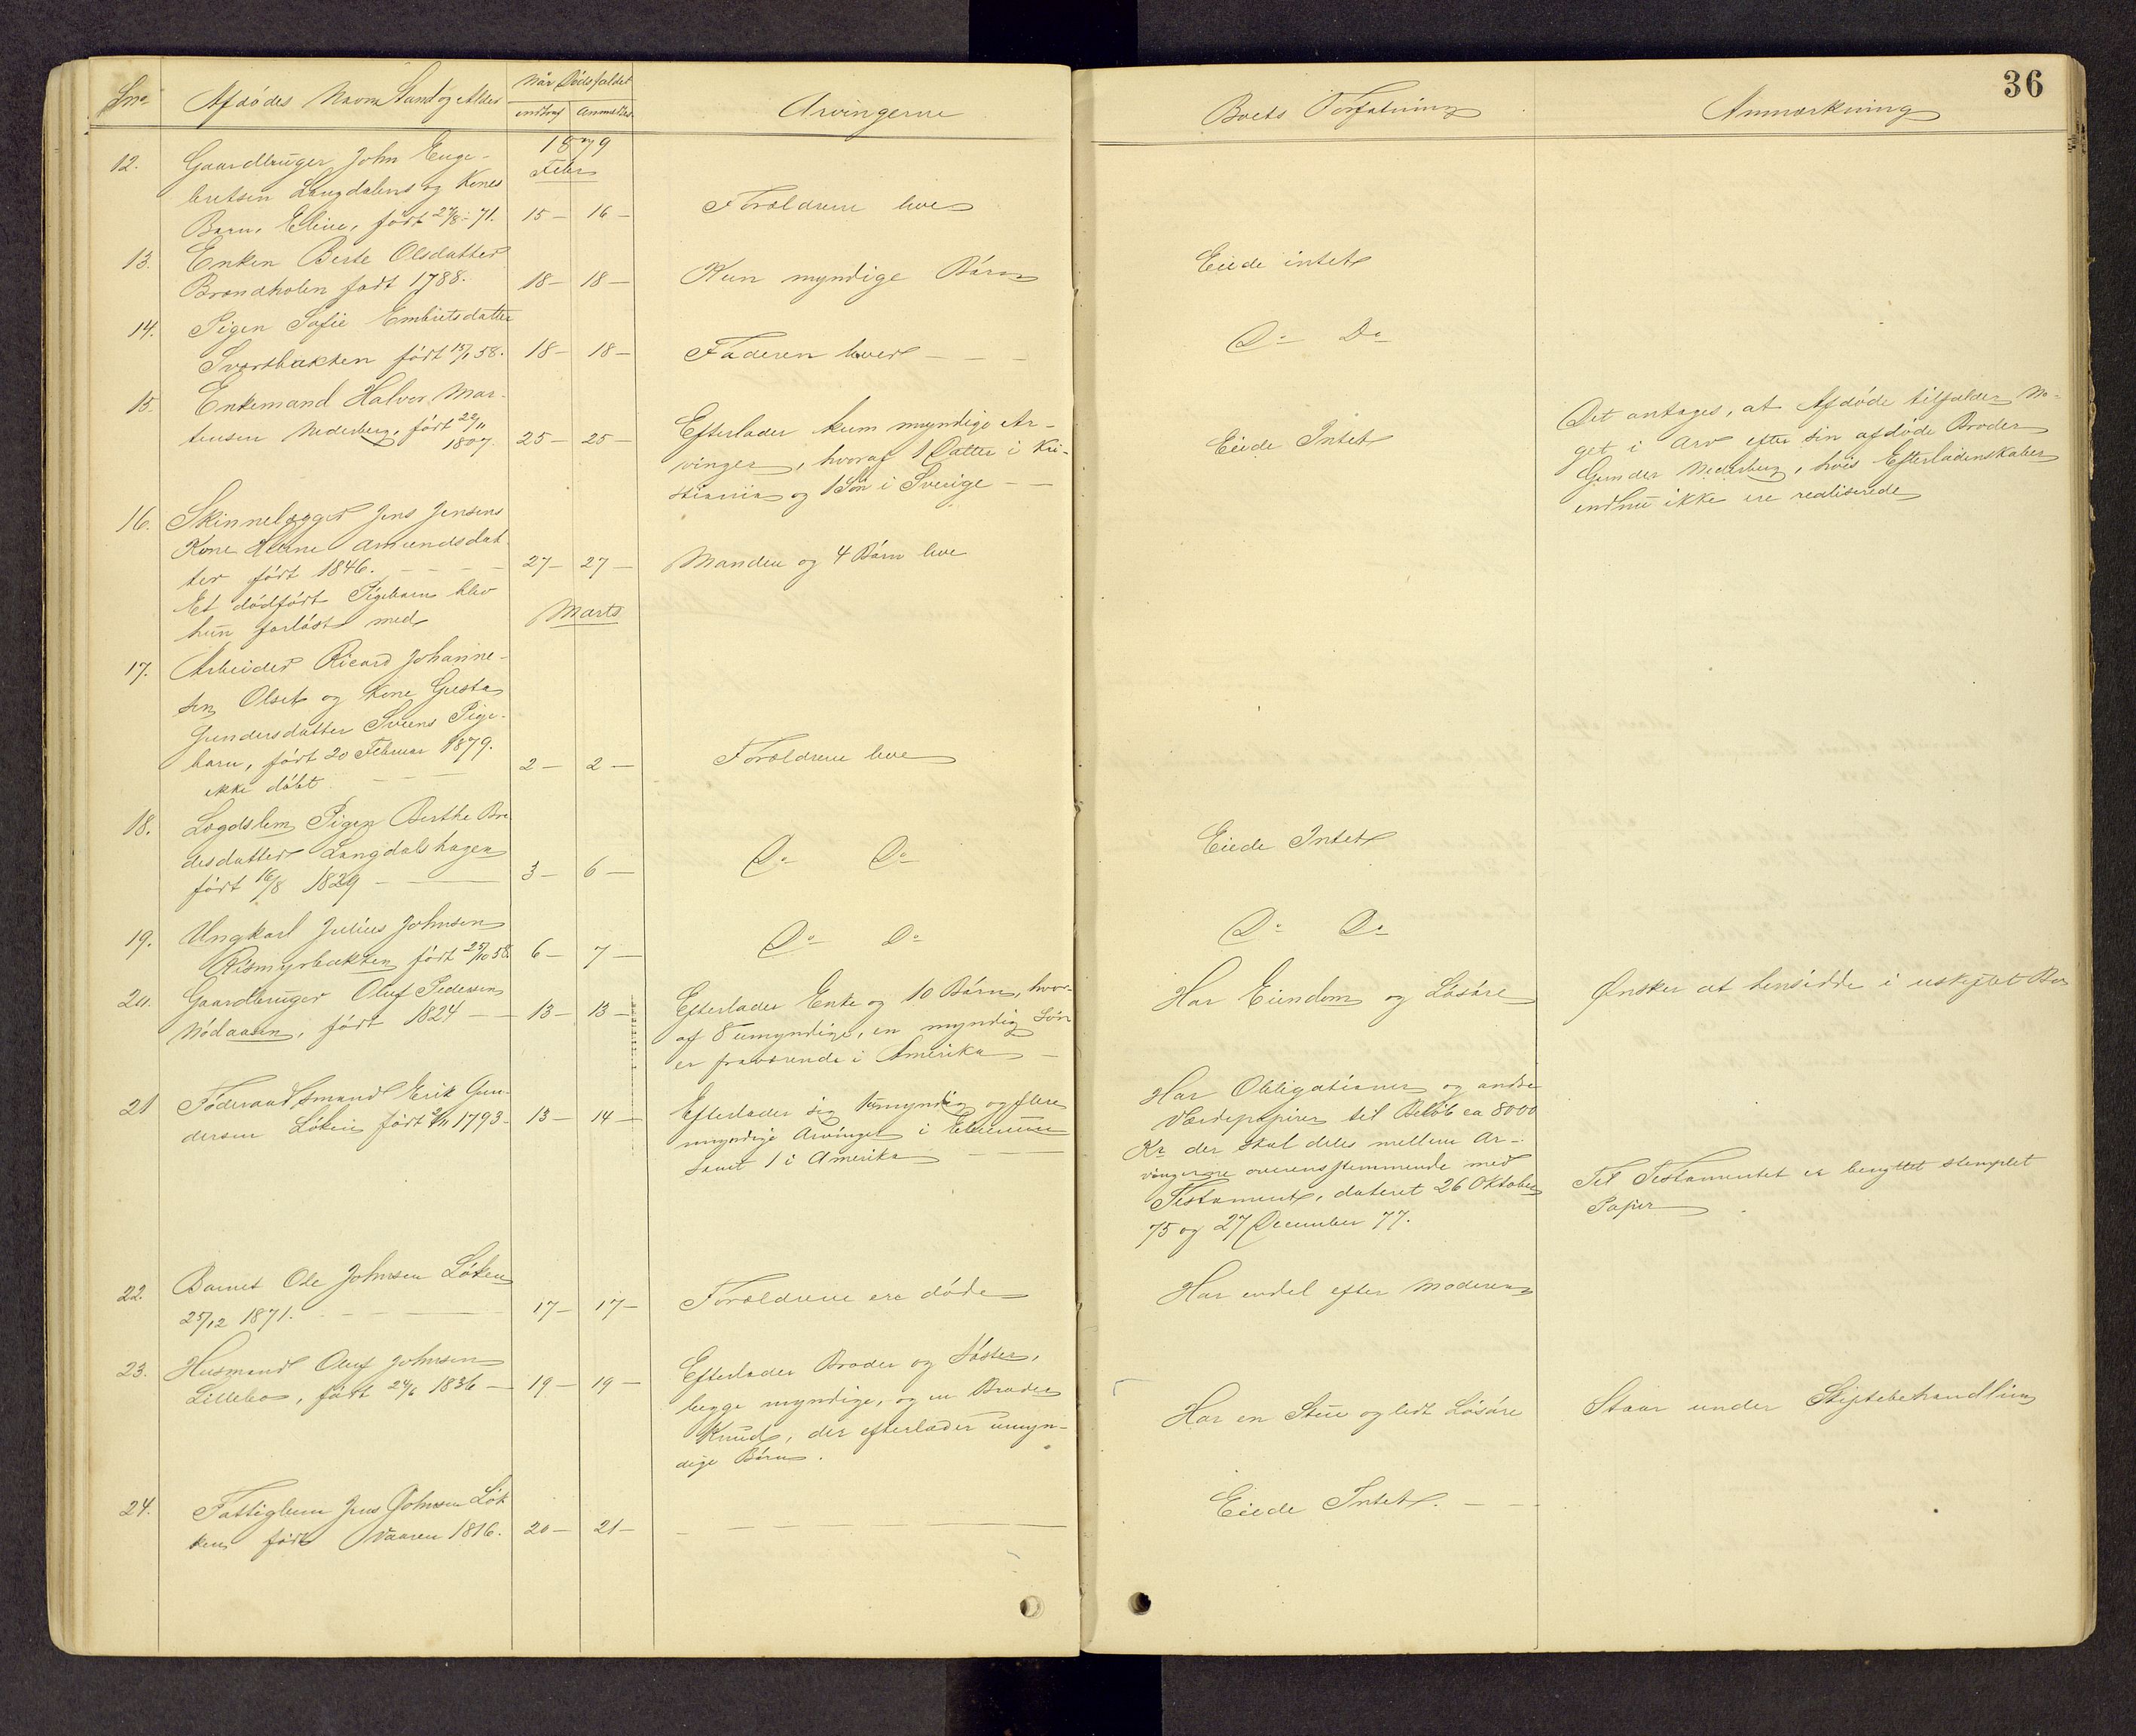 36
Lno Afdödes Navn Stand og Alder Når Dödsfaldet
indtraf Anmeldt Arvingerne Boets Forfatning Anmærkning
1879
Febr
12. Gaardbruger John Enge-
bretsen Langdalens og Kones
Barn, Eline, født 27/8-71. 15 — 16 — Forældrene leve
13. Enken Berte Olsdatter
Brændholen født 1788. 18 — 18 — Kun myndige Börn Eiede intet
14. Pigen Sofie Embretsdatter
Svartbækken född 15/1 58. 18 — 18 — Faderen lever — — — Do Do
15. Enkemand Halvor Mar-
tensen Nederberg, född 22/11
1807. 25 — 25 — Efterlader kun myndige Ar-
vinger, hvoraf 1 Datter i Kri-
stiania og 1 Sön i Sverige — — Eiede Intet
Det antages, at Afdöde tilfalder No-
get i Arv efter sin afdöde Broder
Gunder Nederberg, hvis Efterladenskaber
endnu ikke ere realiserede
16. Skinnelægger Jens Jensens
Kone Amundsdat-
ter född 1846. — — — — 27 — 27 — Manden og 4 Börn leve
Et dödfödt Pigebarn blev
hun forlöst med
Marts
17. Arbeider Ricard Johanne-
sen Olset og Kone Gusta
Gundersdatter Sveens Pige-
barn, född 20 Februar 1879. 2 — 2 — Forældrene leve
ikke döbt — — —
18. Lægdslem Pigen Berthe Bre
desdatter Langdalshagen
född 16/8 1829 — — 3 — 6 — Do Do Eiede Intet
19. Ungkarl Julius Johnsen
Rismyrbækken född 25/10 58. 6 — 7 — Do Do Do Do
20. Gaardbruger Oluf Pedersen
Mödaasen, född 1824 — — 13 — 13 — Efterlader Enke og 10 Börn, hvor-
af 8 umyndige, en myndig Sön
er fraværende i Amerika — Har Eiendom og Lösöre Önsker at hensidde i uskiftet Bo
21 Föderaadsmand Erik Gun-
dersen Löken född 2/11 1793 — 13 — 14 — Efterlader sig 1 umyndig og flere
myndige Arvinger i Elverum
samt 1 i Amerika — — —
Har Obligationer og andre
Værdipapirer til Belöb ca 8000
Kr der skal deles mellem Ar-
vingerne overensstemmende med
Testament, dateret 26 Oktober
75 og 27 December 77.
Til Testamentet er benyttet stemplet
Papir
22. Barnet Ole Johnsen Löken
25/12 1871. — — — 17 — 17 — Forældrene ere döde Har endel efter Moderen
23. Husmand Oluf Johnsen
Lillebo, född 24/6 1836 — 19 — 19 — Efterlader Broder og Söster,
begge myndige, og en Broder
Knud, der efterlader umyn-
dige Börn. Har en Stue og lidt Lösöre Staar under Skiftebehandling
24. Fattiglem Jens Johnsen Lök
ken född Vaaren 1816. 20 — 21 — — — — — Eiede Intet. — — —